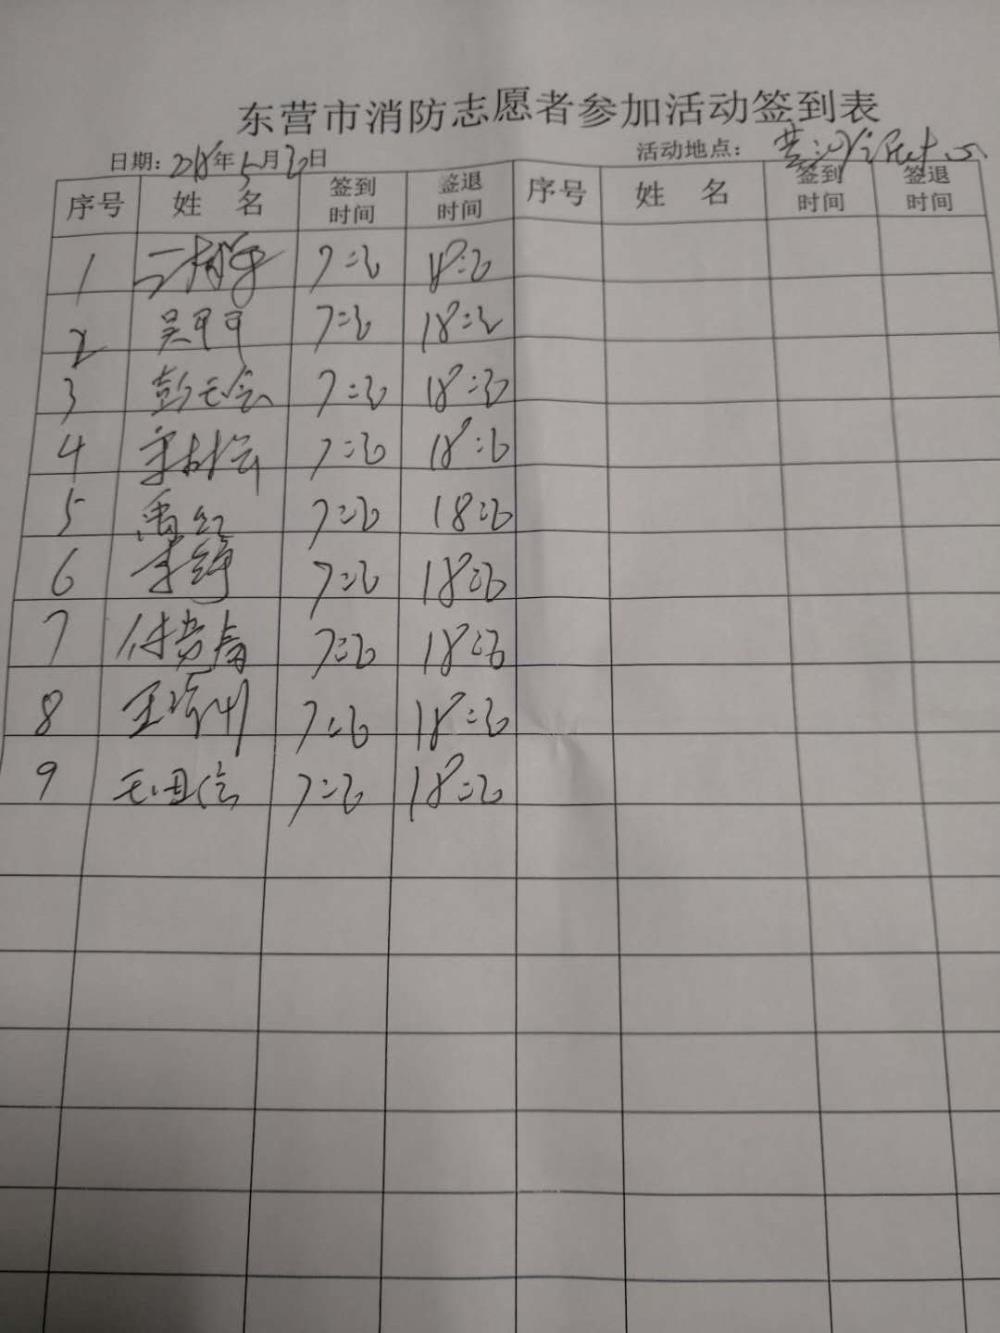 东营市消防志愿者参加活动签到表
日期: 2018年5月30日 活动地点:
序号 姓 名 签到时间 签退时间 序号 姓 名 签到时间 签退时间
1 7:30 18:30
2 吴可可 7:30 18:30
3 彭云会 7:30 18:30
4 7:30 18:30
5 禹红 7:30 18:30
6 李静 7:30 18:30
7 7:30 18:30
8 7:30 18:30
9 7:30 18:30